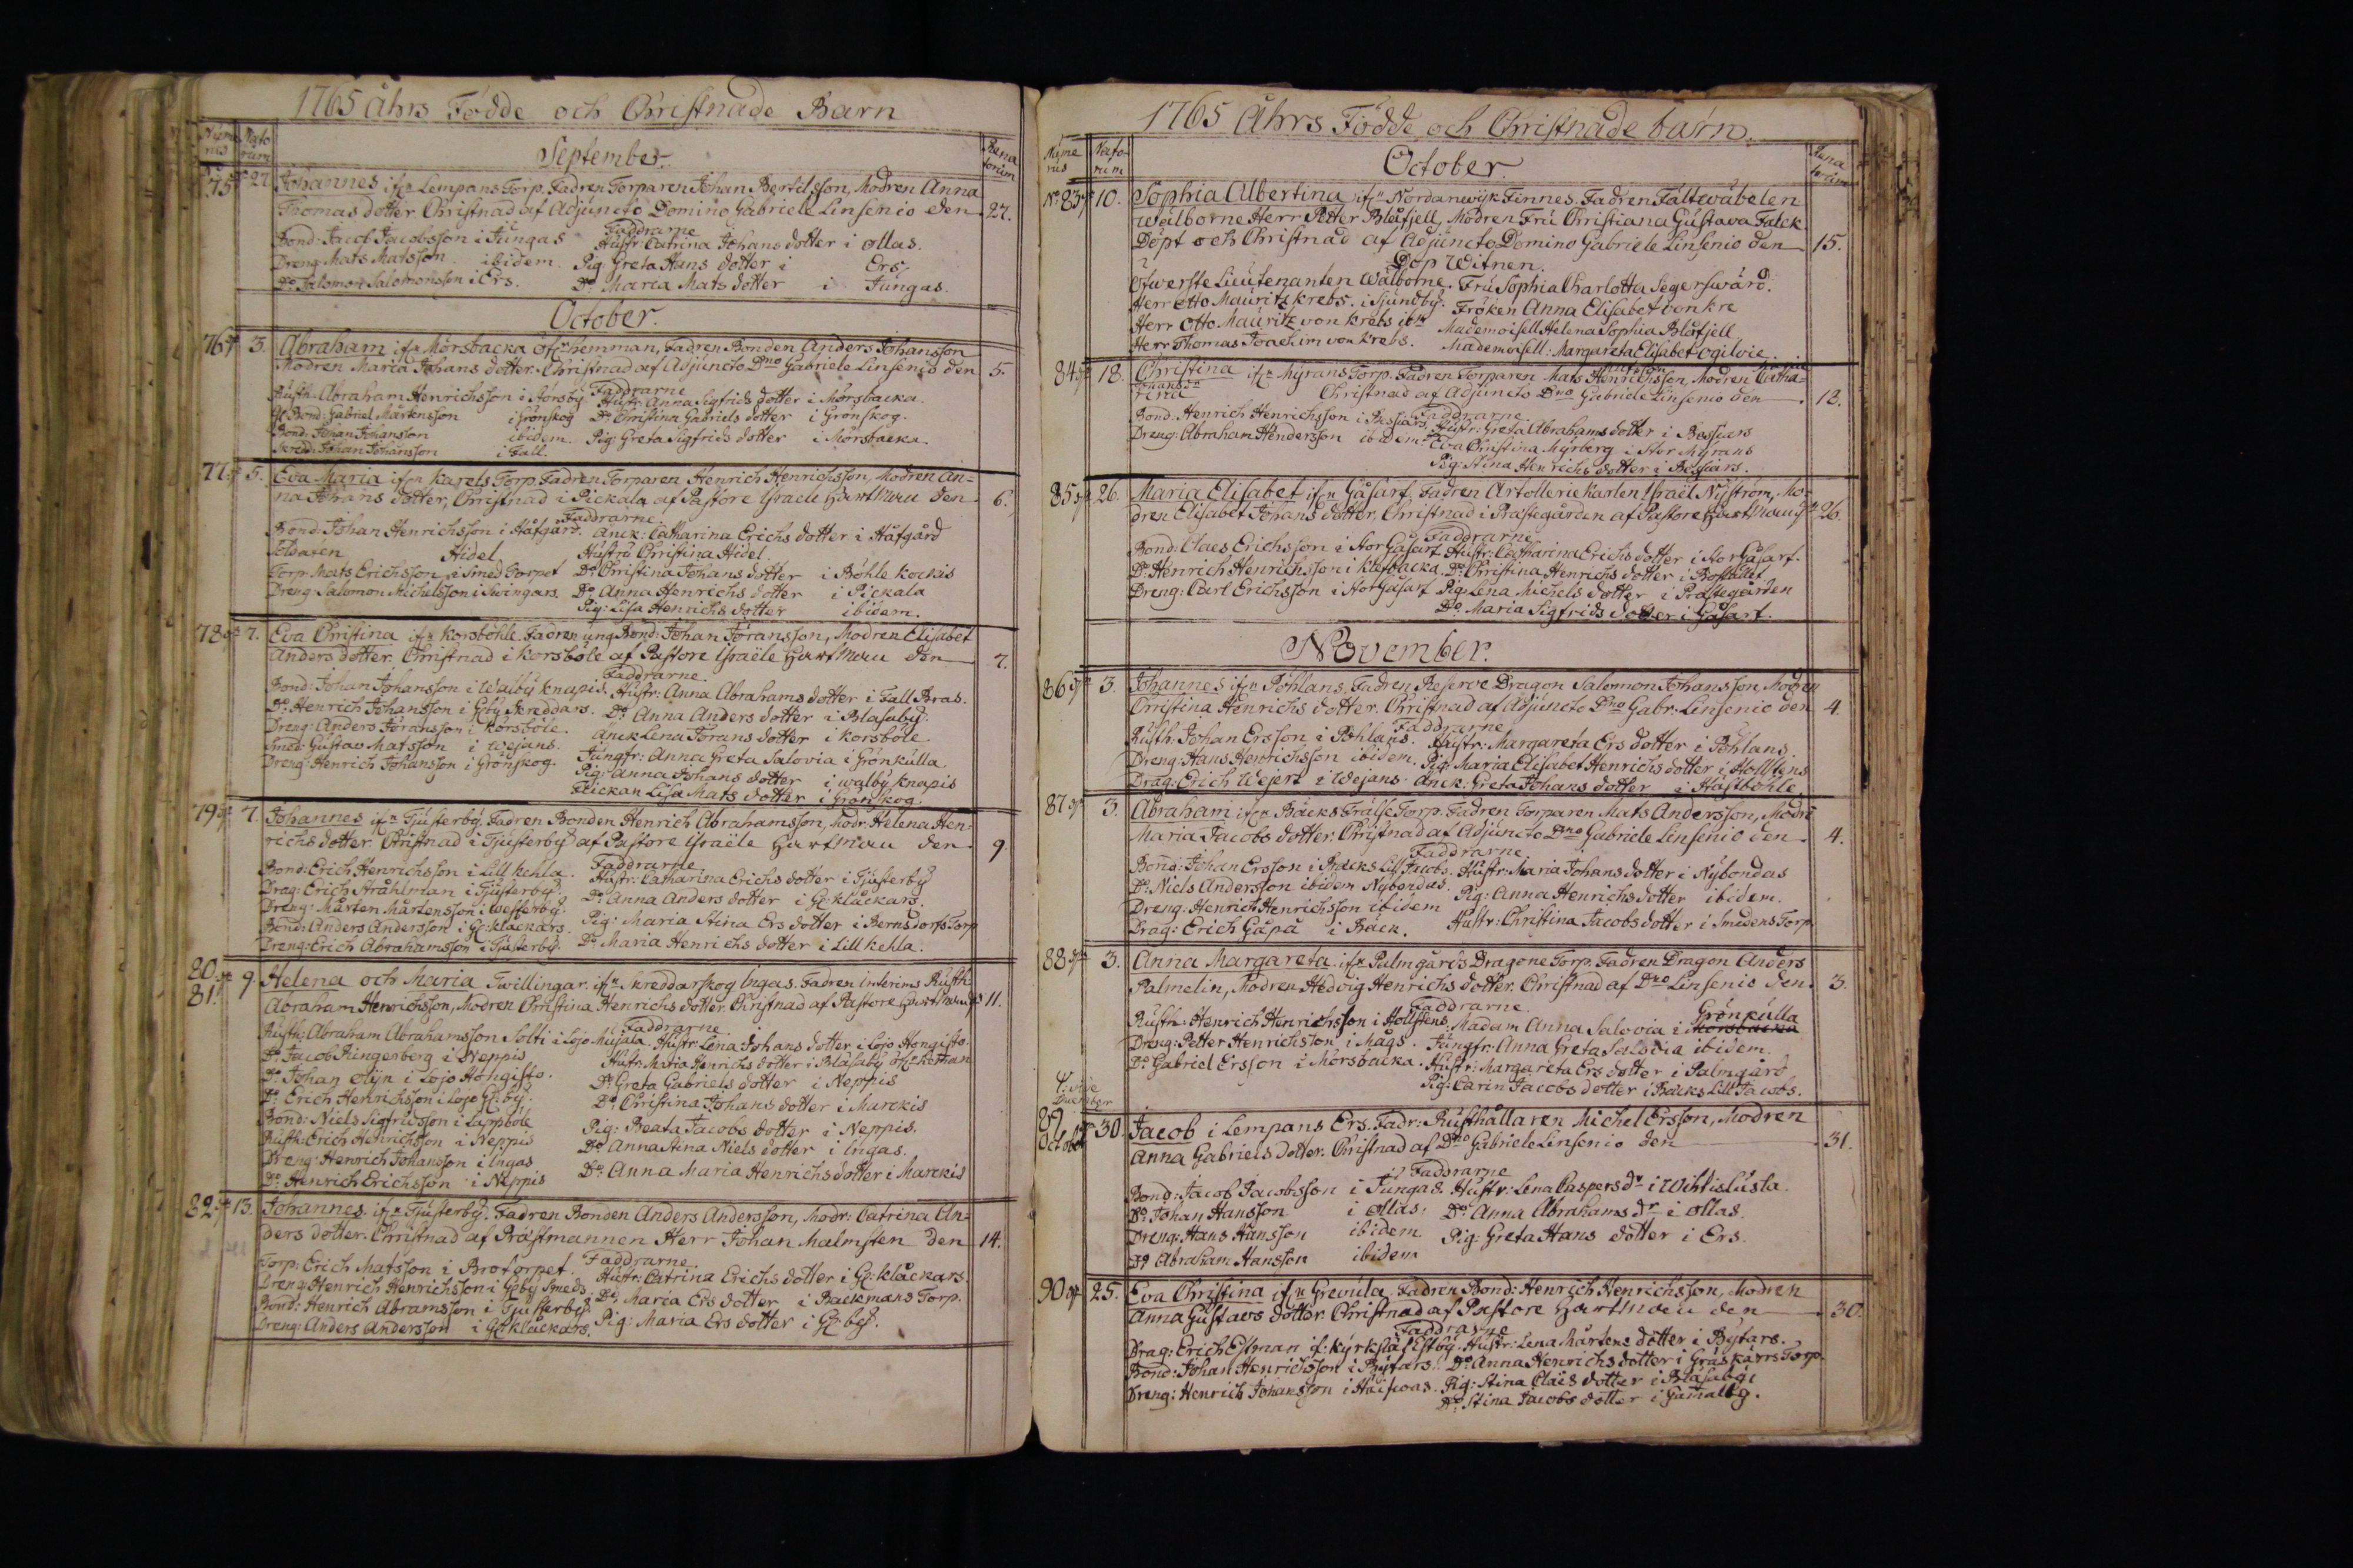 1765 åhrs Födde och Christnade Barn
Nume rus Nato rum Rena torum
September.
75 27 Johannes ifrn Lempans Torp. Fadren Torparen Johan Bertilsson, Modren Anna
Thomas dotter Christnad af Adjuncto Domino Gabriele Linsenio den 27.
Faddrarne
Bond: Jacob Jacobsson i Jungas Hustr: Catrina Johans dotter i ollas.
Dreng Mats Matsson ibidem. Pig: Greta Hans dotter i Ers
Do Salomon Salomonsson i Ers. Do Maria Mats dotter i Jungas.
October.
76 3. Abraham ifrn Mörsbacka hemman, Fadren Bonden Anders Johansson
Modren Maria Johans dotter. Christnad af Adjuncto Dno Gabriele Linsenio den 5.
Faddrarne
Rusth. Abraham Henrichsson i Störsby Hustr: Anna Sigfrids dotter i Mörsbacka.
Bond: Gabriel Mårtensson i Grönskog Do Christina Gabriels dotter i Grönskog.
Bond: Johan Johansson ibidem. Pig: Greta Sigfrids dotter i Mörsbacka.
Skredd: Johan Johansson i Fall.
77 5. Eva Maria ifrn Karels Torp. Fadren Torparen Henrich Henrichsson, Modren An=
na Johans dotter, Christnad i Pickala af Pastore Israele Hartman den 6.
Faddrarne
Bond: Johan Henrichsson i Håfgård. Anck: Catharina Erichs dotter i Håfgård
Soldaten Hidel. Hustru Christina Hidel.
Torp: Mats Erichsson i Smed Torpet Do Christina Johans dotter i Böhle kockis
Dreng: Salomon Michelsson i Swingars. Do Anna Henrichs dotter i Pickala
Pig: Lisa Henrichs dotter ibidem.
78 7. Eva Christina ifrn Korsböhle. Fadren ung Bond: Johan Jöransson, Modren Elisabet
Anders dotter. Christnad i Korsböle af Pastore Israële Hartman den 7.
Faddrarne
Bond: Johan Johansson i Walby Knapis. Hustr: Anna Abrahams dotter i Fall Bras.
Do Henrich Johansson i Gby Skreddars. Do Anna Anders dotter i Blasaby.
Dreng: Anders Jöransson i Korsböle. Anck Lena Jörans dotter i Korsböle
Smed: Gustav Matsson i Wejans. Jungfr: Anna Greta Salovia i Grönkulla
Dreng: Henrich Johansson i Grönskog. Pig: Anna Johans dotter i Walby Knapis
Flickan Lisa Mats dotter i Grönskog.
79 7. Johannes ifrn Tjusterby. Fadren Bonden Henrich Abrahamsson, Modr: Helena Hen=
richs dotter. Christnad i Tjusterby af Pastore Israële Hartman den 9
Faddrarne
Bond: Erich Henrichsson i Lill kehla. Hustr: Catharina Erichs dotter i Tjusterby
Drag: Erich Stråhlman i Tjusterby. Do Anna Anders dotter i G: klåckars.
Dreng: Mårten Mårtensson i Westerby. Pig: Maria Stina Ers dotter i Bernsdorfs Torp
Bond: Anders Andersson i G: klackars.
Dreng: Erich Abrahamsson i Tjusterby. Do Maria Henrichs dotter i Lill kehla.
80 81. 9. Helena och Maria Twillingar. ifrn Skreddarskog Ingas. Fadren Interims Rusth.
Abraham Henrichsson, Modren Christina Henrichs dotter. Christnad af Pastore Hartman 11.
Faddrarne
Rusth: Abraham Abrahamsson Solti i Lojo Mujala. Hustr: Lena Johans dotter i Lojo Hongisto.
Do Jacob Ringerberg i Neppis Hustr: Maria Henrichs dotter i Blåsaby
Do Johan olijn i Lojo Hongisto. Do Greta Gabriels dotter i Neppis
Do Erich Henrichsson i Lojo G: by. Do Christina Johans dotter i Marckis
Bond: Niels Sigfridsson i Lappböle Pig: Beata Jacobs dotter i Neppis.
Rusth: Erich Henrichsson i Neppis Do Anna Stina Niels dotter i Ingas.
Dreng: Henrich Johansson i Ingas Do Anna Maria Henrichs dotter i Marckis
Do Henrich Erichsson i Neppis
82 13. Johannes. ifrn Tjusterby. Fadren Bonden Anders Andersson, Modr: Catrina An=
ders dotter. Christnad af Prästmannen Herr Johan Malmsten den 14.
Faddrarne
Torp: Erich Matsson i Brotorpet. Hustr: Catrina Erichs dotter i G: klåckars.
Dreng: Henrich Henrichsson i Gby Smeds. Do Maria Ers dotter i Backmans Torp.
Bond: Henrich Abramsson i Tjusterby. Pig: Maria Ers dotter i G: by.
Dreng: Anders Andersson i G: klåckars.
1765 Åhrs Födde och Christnade barn.
Nume rus Nato rum Rena torum
October.
No 83 10. Sophia Albertina ifrn Nordanwijk Finnes. Fadren Fältwäbelen
wälborne Herr Petter Blåfjell, Modren Fru Christiana Gustava Falck.
Döpt och Christnad af Adjuncto Domino Gabriele Linsenio den 15.
Dop Witnen.
Öfwerste Lieutenanten Wälborne. Fru Sophia Charlotta Segerswärd.
Herr Otto Mauritz Krebs. i Sjundby. Fröken Anna Elisabet von kre
Herr Otto Mauritz von Krebs Mademoisell Helena Sophia Blåfjell
Herr Thomas Joachim von Krebs. Mademoisell: Margareta Elisabet ogilvie.
84 18. Christina ifrn Myrans Torp. Fadren Torparen Mats Henrichsson, Modren Catha=
rina Johans Dr Christnad af Adjuncto Dno Gabriele Linsenio den 18.
Faddrarne
Bond: Henrich Henrichsson i Bessars. Hustr: Greta Abrahams dotter i Bessars
Dreng: Abraham Hendersson ibidem. Eva Christina Myrberg i Stor Myrans
Pig: Stina Henrichs dotter i Bessars.
85 26. Maria Elisabet ifrn Gåsarf. Fadren Artollerie karlen Israël Nyström, Mo=
dren Elisabet Johans dotter. Christnad i Prästegården af Pastore Hartman 26.
Faddrarne
Bond: Claes Erichsson i Stor Gåsarf Hustr: Catharina Erichs dotter i Stor Gåsarf.
Do Henrich Henrichsson i Klefbacka. Do Christina Henrichs dotter i Bostället
Dreng: Carl Erichsson i Stor Gåsarf Pig: Lena Michels dotter i Prästegården
Do Maria Sigfrids dotter i Gåsarf.
November.
86 3. Johannes ifrn Pöhlans. Fadren Reserve Dragon Salomon Johansson, Modren
Christina Henrichs dotter. Christnad af Adjuncto Dno Gabr: Linsenio den 4.
Faddrarne
Rusth: Johan Ersson i Pöhlans. Hustr: Margareta Ers dotter i Pöhlans.
Dreng: Hans Henrichsson ibidem. Pig: Maria Elisabet Henrichs dotter i Hollstens
Drag: Erich Wejert i Wejans. Anck: Greta Johans dotter i Hästböhle.
87 3. Abraham ifrn Bäcks Frälse Torp. Fadren Torparen Mats Andersson, Modr:
Maria Jacobs dotter. Christnad af Adjuncto Dno Gabriele Linsenio den 4.
Faddrarne
Bond: Johan Ersson i Bäcks Lill Jacobs. Hustr: Maria Johans dotter i Nybondas
Do Niels Andersson ibidem Nybondas. Pig: Anna Henrichs dotter ibidem.
Dreng: Henrich Henrichsson ibidem Hustr: Christina Jacobs dotter i Smedens Torp
Drag: Erich Gåpå i Bäck.
88 3. Anna Margareta ifrn Palmgårds Dragone Torp. Fadren Dragon Anders
Palmelin, Modren Hedvig Henrichs dotter. Christnad af Dno Linsenio den 3.
Faddrarne Grönkulla
Rusth: Henrich Henrichsson i Hollstens. Madam Anna Salovia i Mörsbacka
Dreng: Petter Henrichsson i Mågs. Jungfr: Anna Greta Salovia ibidem.
Do Gabriel Ersson i Mörsbacka. Hustr: Margareta Ers dotter i Palmgård
Pig: Carin Jacobs dotter i Bäcks Lill Jacobs.
89 October 30. Jacob i Lempans Ers. Fadr: Rusthållaren Michel Ersson, Modren
Anna Gabriels dotter. Christnad af Dno Gabriele Linsenio den 31.
Faddrarne
Bond: Jacob Jacobsson i Jungas. Hustr: Lena Caspers dr i Wihtislusta.
Do Johan Hansson i ollas. Do Anna Abrahams dr i ollas.
Dreng: Hans Hansson ibidem Pig: Greta Hans dotter i Ers.
Do Abraham Hansson ibidem
90 25. Eva Christina ifrn Grevula. Fadren Bond: Henrich Henrichsson, Modren
Anna Gustavs dotter. Christnad af Pastore Hartman den 30.
Faddrarne
Drag: Erich Estman if: kyrkslät Estby. Hustr: Lena Mårtens dotter i Bytars.
Bond: Johan Henrichsson i Bytars. Do Anna Henrichs dotter i Gräskärrs Torp.
Dreng: Henrich Johansson i Pig: Stina Claes dotter i Blåsaby
Do Stina Jacobs dotter i Gamalby.